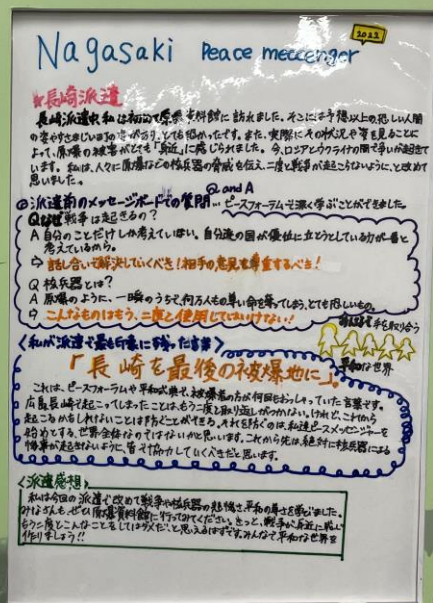 Nagasaki Peace meccenger
2022
★長崎派遣
長崎派遣中、私は初めて原爆資料館に訪れました。そこには予想以上の悲しい人間
の姿やすさまじい
があり、とても怖かったです。また、実際にその状況や姿を見ることに
よって、原爆の被害がとても「身近」に感じました。今、ロシアとウクライナの間で争いが起きて
います。私は、人々に原爆などの核兵器の脅威を伝え、二度と戦争が起こらないように、と改めて
思いました。
◎派遣前のメッセージボードでの質問… Q and A
ピースフォーラムで深く学ぶことができました。
Q なぜ戦争は起きるの?
A 自分のことだけしか考えていない。自分達の国が優位に立とうとしている力が一番と
考えているから。
⇨ 話し合いで解決していくべき!相手の意見を尊重するべき!
Q 核兵器とは?
A 原爆のように、一瞬のうちで、何万人もの尊い命を奪ってしまう、とても恐しいもの。
⇨ こんなものはもう、二度と使用してはいけない!
みんなで手を取り合う
平和な世界
〈私が派遣で最も印象に残った言葉〉
「長崎を最後の被爆地に」。
これは、ピースフォーラムや平和式典で、被爆者の方が何回もおっしゃっていた言葉です。
広島長崎で起こってしまったことは、もう二度と取り返しがつかない。けれど、これから
起こるかもしれないことは防ぐことができる。それを防ぐのは、私達ピースメッセンジャーを
始めとする、世界全体なのではないかと思います。これから先は、絶対に核兵器による
惨事が起きないように、皆で協力していくべきだと思います。
〈派遣感想〉
私は今回の派遣で改めて戦争や核兵器の
平和の尊さを学びました。
みなさんも、ぜひ原爆資料館に行ってみてください。きっと、戦争が身近に感じ、
もう二度とこんなことをしてはダメだ、と思えるはずです。みんなで平和な世界を
作りましょう!!